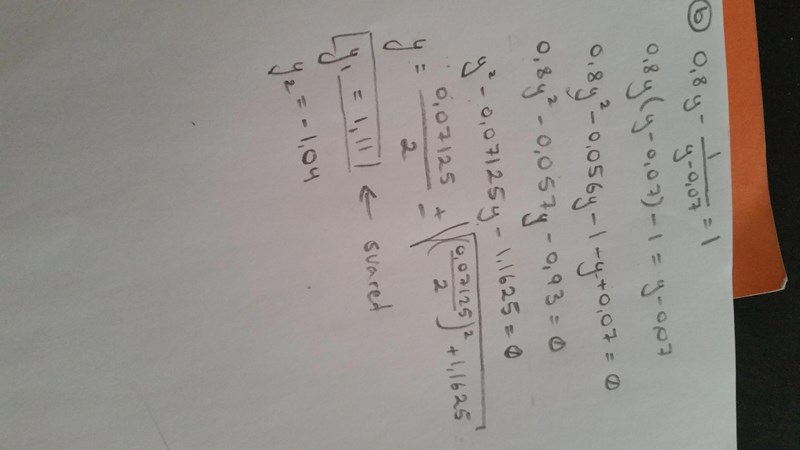 b) 0,8y - 1/(y-0,07) = 1
0,8y(y-0,07)-1 = y-0,07
0,8y²-0,056y-1-y+0,07=0
0,8y²-0,057y-0,93=0
y²-0,07125y-1,1625=0
y = 0,07125/2 ± √((0,07125/2)²+1,1625)
y₁ = 1,11 ← svaret
y₂ = -1,04